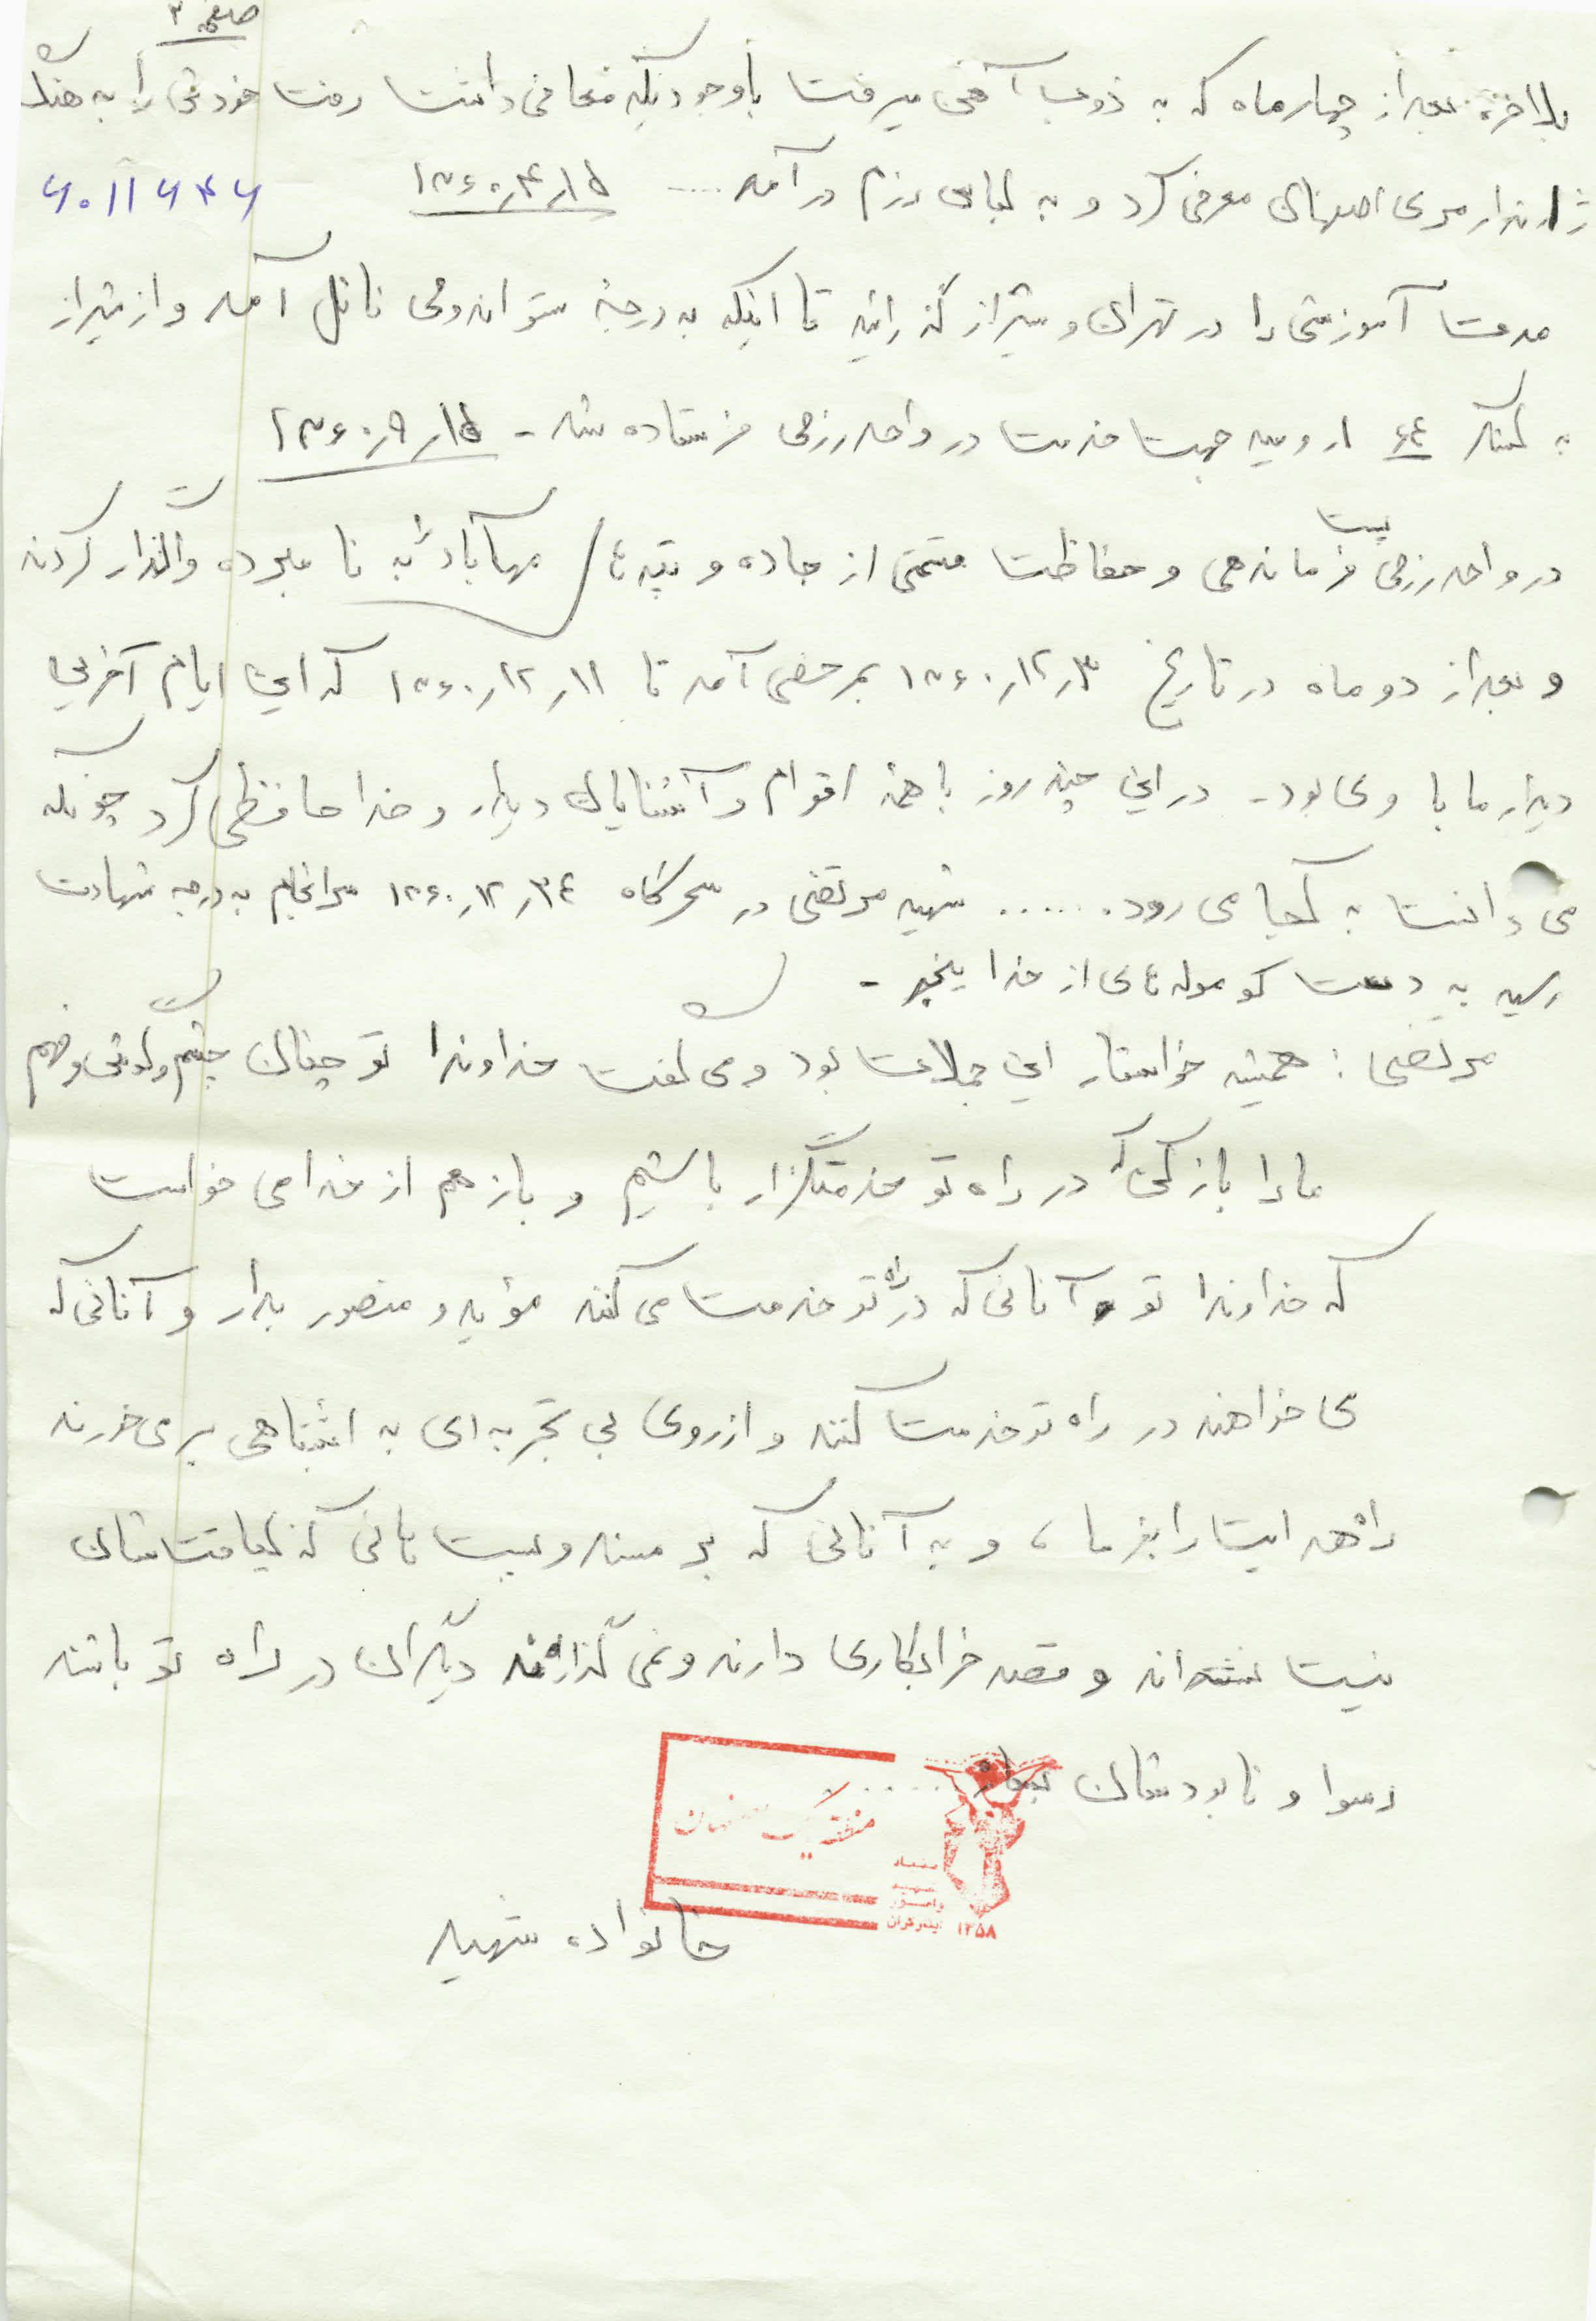 صفحه ۳
بلاخره بعد از چهار ماه که به ذوب آهن میرفت باوجودیکه معافی داشت رفت خودش را به هنگ
ژاندارمری اصفهان معرفی کرد و به لباس رزم درآمد ..... ۱۳۶۰٫۴٫۱۵
مدت آموزشی را در تهران و شیراز گذرانید تا اینکه به درجه ستواندومی نائل آمد و از شیراز
به لشکر ۶۴ ارومیه جهت خدمت در واحد رزمی فرستاده شد - ۱۳۶۰٫۹٫۱۵
در واحد رزمی فرماندهی پست و حفاظت قسمتی از جاده و تپه‌ها مهاباد را به نامبرده واگذار کردند
و بعد از دو ماه در تاریخ ۱۳۶۰٫۱۲٫۳ بمرخصی آمد تا ۱۳۶۰٫۱۲٫۱۱ که این ایام آخرین
دیدار ما با وی بود - در این چند روز با همه اقوام و آشنایان دیدار و خداحافظی کرد چونکه
می دانست به کجا می رود ...... شهید مرتضی در سحرگاه ۱۳۶۰٫۱۲٫۲۴ سرانجام به درجه شهادت
رسید به دست کوموله های از خدا بیخبر -
مرتضی : همیشه خواستار این جملات بود و می گفت خداوندا تو چنان چشم و گوش و فهم
ما را باز کن که در راه تو خدمتگزار باشیم و باز هم از خدا می خواست
که خداوندا تو آنانی که در راه تو خدمت می کنند مؤید و منصور بدار و آنانی که
می خواهند در راه تو خدمت کنند و از روی بی تجربه ای به اشتباهی برمی خورند
راه هدایت را بفرما ، و به آنانی که بر مسند و پست هائی که لیاقتشان
نیست نشسته‌اند و قصد خرابکاری دارند و نمی گذارند دیگران در راه تو باشند
رسوا و نابودشان بساز .....
منطقه یک اصفهان
بنیاد
شهید
۱۳۵۸
خانواده شهید